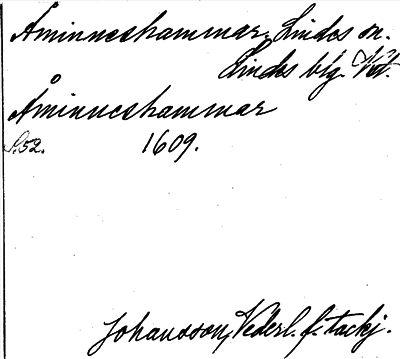 Åminneshammar, Lindes sn.
Lindes blg. Vstm.
Åminneshammar
S. 52. 1609.
Johansson, Vederl. f. tackj.